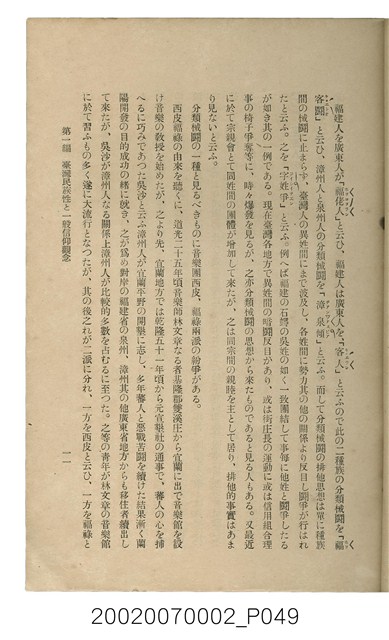 福建人を廣東人が「福佬人」と云ひ、福建人は廣東人を「客人」と云ふので此の二種族の分類械鬪を「福
客鬪」と云ひ、漳州人と泉州人の分類械鬪を「漳泉拚」と云ふ。而して分類械鬪の排他思想は單に種族
間の械鬪に止まらず、臺灣人の異姓間にまで波及し、各姓間に勢力其の他の關係より反目し鬪爭が行はれ
たと云ふ。之を「字姓爭」と云ふ。例へば福建の石潯の吳姓の如く一致團結して事每に他姓と鬪爭したる
が如き其の一例である。現在臺灣各地方で異姓間の暗鬪反目があり、或は街庄長の運動に或は信用組合理
事の椅子爭奪等に、時々爆發を見るが、之亦分類械鬪の思想から來たものであると見る人もある。又最近
に於て宗親會とて同姓間の團體が增加して來たが、之は同宗間の親睦を主として居り、排他的事實はあま
り見ないと云ふ。
分類械鬪の一種と見るべきものに音樂團西皮、福祿兩派の紛爭がある。
西皮福祿の由來を聽くに、道光二十五年頃音樂師林文章なる者基隆郡雙溪庄から宜蘭に出で音樂館を設
け音樂の敎授を始めたが、之より先、宜蘭地方では乾隆五十一年頃から元官隸社の通事で、蕃人の心を捕
へるに巧みであつた吳沙と云ふ漳州人が宜蘭平野の開墾に志し、多年蕃人と惡戰苦鬪を續けた結果漸く蘭
陽開發の目的成功の緖に就き、之が爲め對岸の福建省の泉州、漳州其の他廣東省地方からも移住者續出し
て來たが、吳沙が漳州人なる關係上漳州人が比較的多數を占むるに至つた。之等の靑年が林文章の音樂館
に於て習ふもの多く遂に大流行となつたが、其の後之れが二派に分れ、一方を西皮と云ひ、一方を福祿と
第一編　臺灣民族性と一般信仰觀念
一一
20020070002_P049